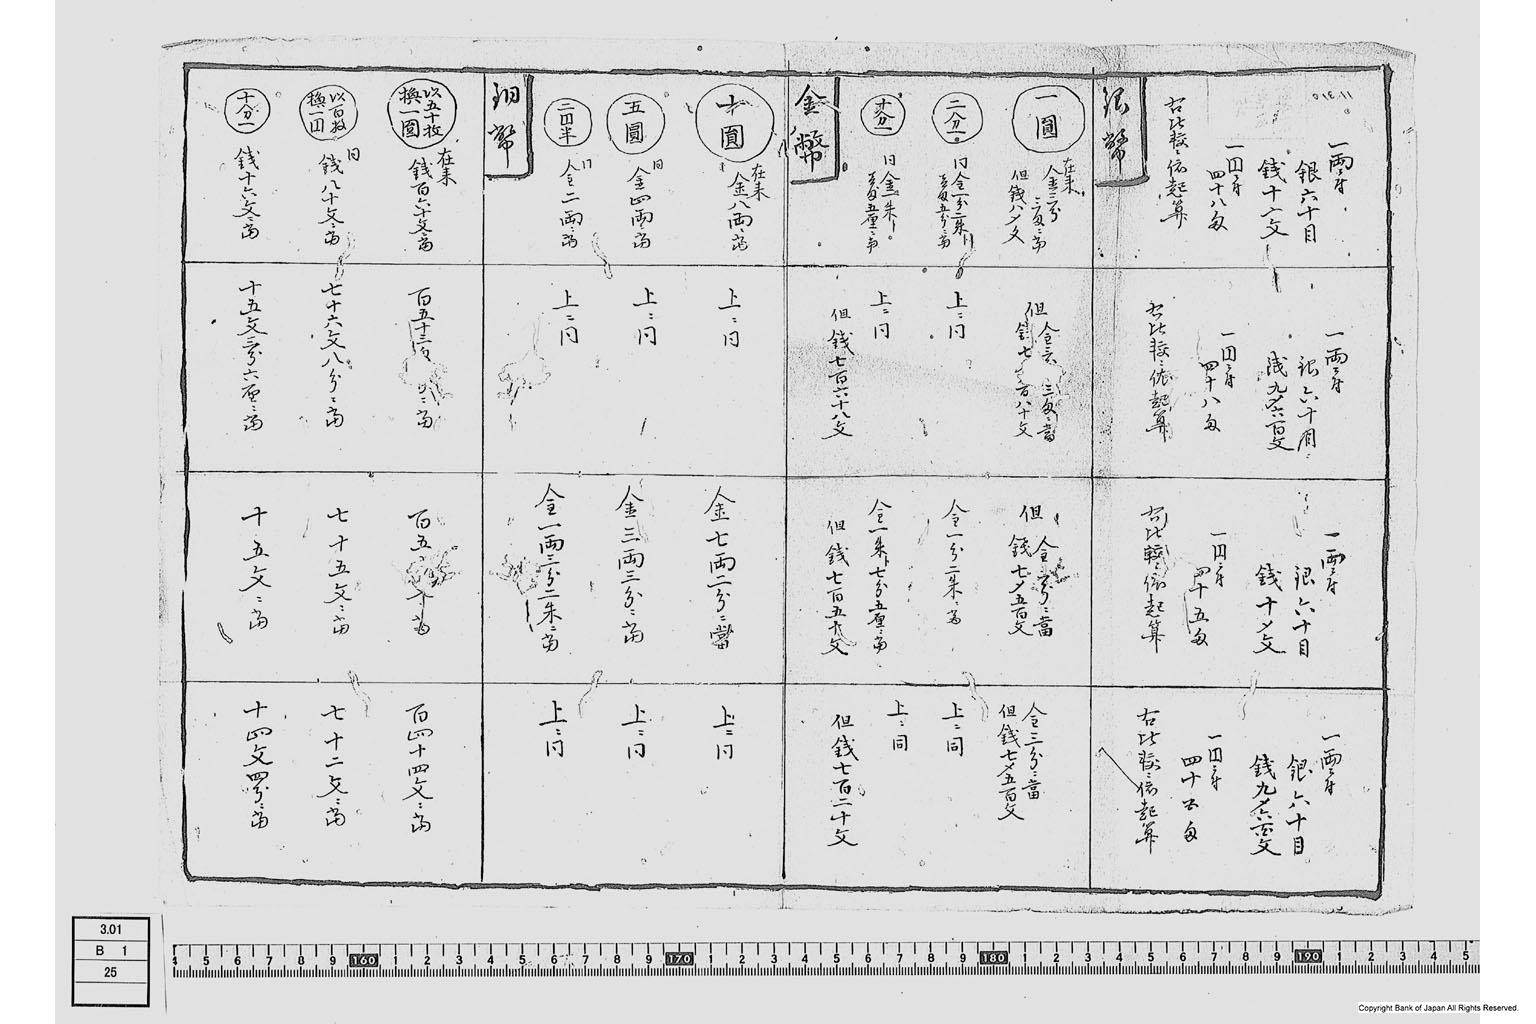 一両ニ付
銀六十目
銭十〆文
一円ニ付
四十八匁
右比較ニ依起算
銀幣
一圓
在来
金三分
三匁ニ當
但銭八〆文
二分一
同金一分二朱ト
十分一
同金一朱ト
金幣
十圓
在来
金八両ニ當
五圓
同
金四両ニ當
二円半
同
金二両ニ當
銅幣
以五十枚
換一圓
在来
銭百六十文ニ當
以百枚
換一円
同
銭八十文ニ當
十分一
銭十六文ニ當
一両ニ付
銀六十目
銭九〆六百文
一円ニ付
四十八匁
右比較ニ依起算
但
三匁ニ當
上ニ同
上ニ同
但銭七百六十八文
上ニ同
上ニ同
上ニ同
百五十三
七十六文八分ニ當
十五文三分六厘ニ當
一両ニ付
銀六十目
銭十〆文
一円ニ付
四十五匁
右比較ニ依起算
但
銭七〆五百文
金一分二朱ニ當
金一朱ト七分五厘ニ當
但銭七百五十文
金七両二分ニ當
金三両三分ニ當
金一両三分二朱ニ當
百五十
七十五文ニ當
十五文ニ當
一両ニ付
銀六十目
銭九〆六百文
一円ニ付
四十五匁
右比較ニ依起算
金三分ニ當
但銭七〆五百文
上ニ同
上ニ同
但銭七百二十文
上ニ同
上ニ同
上ニ同
百四十四文ニ當
七十二文ニ當
十四文四分ニ當
3.01
B 1
25
4 5 6 7 8 9 160 1 2 3 4 5 6 7 8 9 170 1 2 3 4 5 6 7 8 9 180 1 2 3 4 5 6 7 8 9 190 1 2 3 4 5
Copyright Bank of Japan All Rights Reserved.